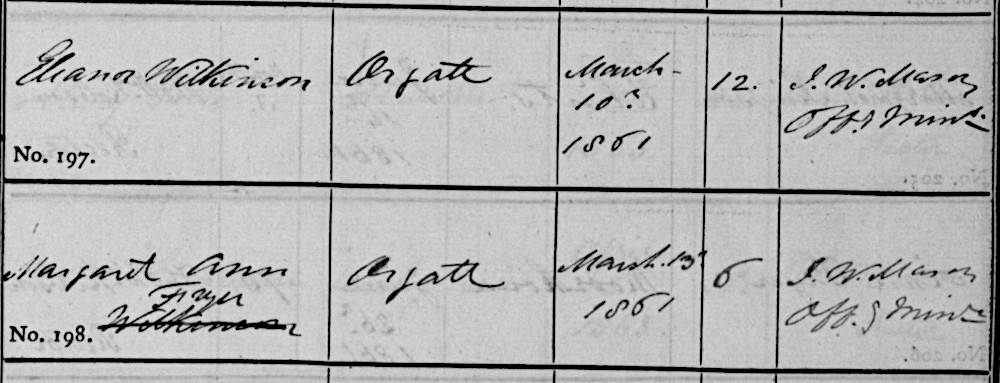 Eleanor Wilkinson Orgate March 12. J. W. Mason
10th Offg Minr
1861
No. 197.
Margaret Ann Orgate March 13th 6 J. W. Mason
Fryer 1861 Offg Minr
Wilkinson
No. 198.